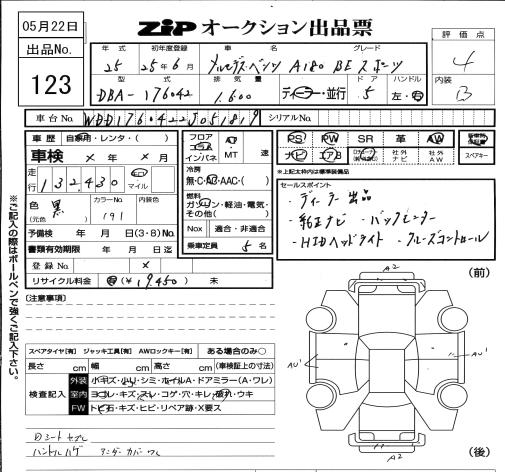 05月22日
ZIP オークション出品票
評価点
4
出品No.
123
年式
初年度登録
車名
グレード
25
25年6月
メルセデス・ベンツ A180 BE スポーツ
型式
排気量
ドア
ハンドル
内装
DBA-176042
1,600
ディーラー・並行
5
左・右
B
車台No.
WDD1760422J051819
シリアルNo.
車歴
自家用・レンタ・( )
フロア
コラム
インパネ
AT
MT
速
PS
PW
SR
革
AW
新車時保証書
車検 × 年 × 月
ナビ
エアB
社外ナビ
社外AW
スペアキー
冷房
無・C・AC・AAC・( )
※上記太枠内は標準装備品
走行
132,430
km
マイル
燃料
ガソリン・軽油・電気・その他( )
セールスポイント
・ディーラー出品
・純正ナビ ・バックモニター
・HIDヘッドライト ・クルーズコントロール
色
(元色)
黒
カラーNo.
191
内装色
Nox
適合・非適合
予備検 年 月 日(3・8)No.
乗車定員
5 名
書類有効期限 年 月 日迄
登録No. ×
リサイクル料金 有(¥ 19,450 ) 未
【注意事項】
※ご記入の際はボールペンで強くご記入下さい。
(前)
A2
AU'
AU'
A2
(後)
スペアタイヤ[有] ジャッキ工具[有] AWロックキー[有] ある場合のみ○
長さ cm 幅 cm 高さ cm (車検証上の寸法)
検査記入
外装 小キズ・小凹・シミ・ホイルA・ドアミラー(A・ワレ)
室内 ヨゴレ・キズ・スレ・コゲ・穴・キレ・破れ・ウキ
FW トビ石・キズ・ヒビ・リペア跡・X要ス
Dシートセズレ
ハンドルハゲ アンダーカバーワレ